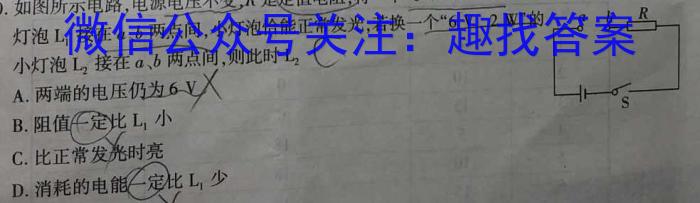 如图所示电路,电源电压不变,R是定值电阻,
灯泡 L₁ 接在 a、b 两点间,小灯泡恰能正常发光,若换一个“6 V 2 W”的
微信公众号关注:趣找答案
小灯泡 L₂ 接在 a、b 两点间,则此时 L₂
A. 两端的电压仍为 6 V
B. 阻值一定比 L₁ 小
C. 比正常发光时亮
D. 消耗的电能一定比 L₁ 少
R
S